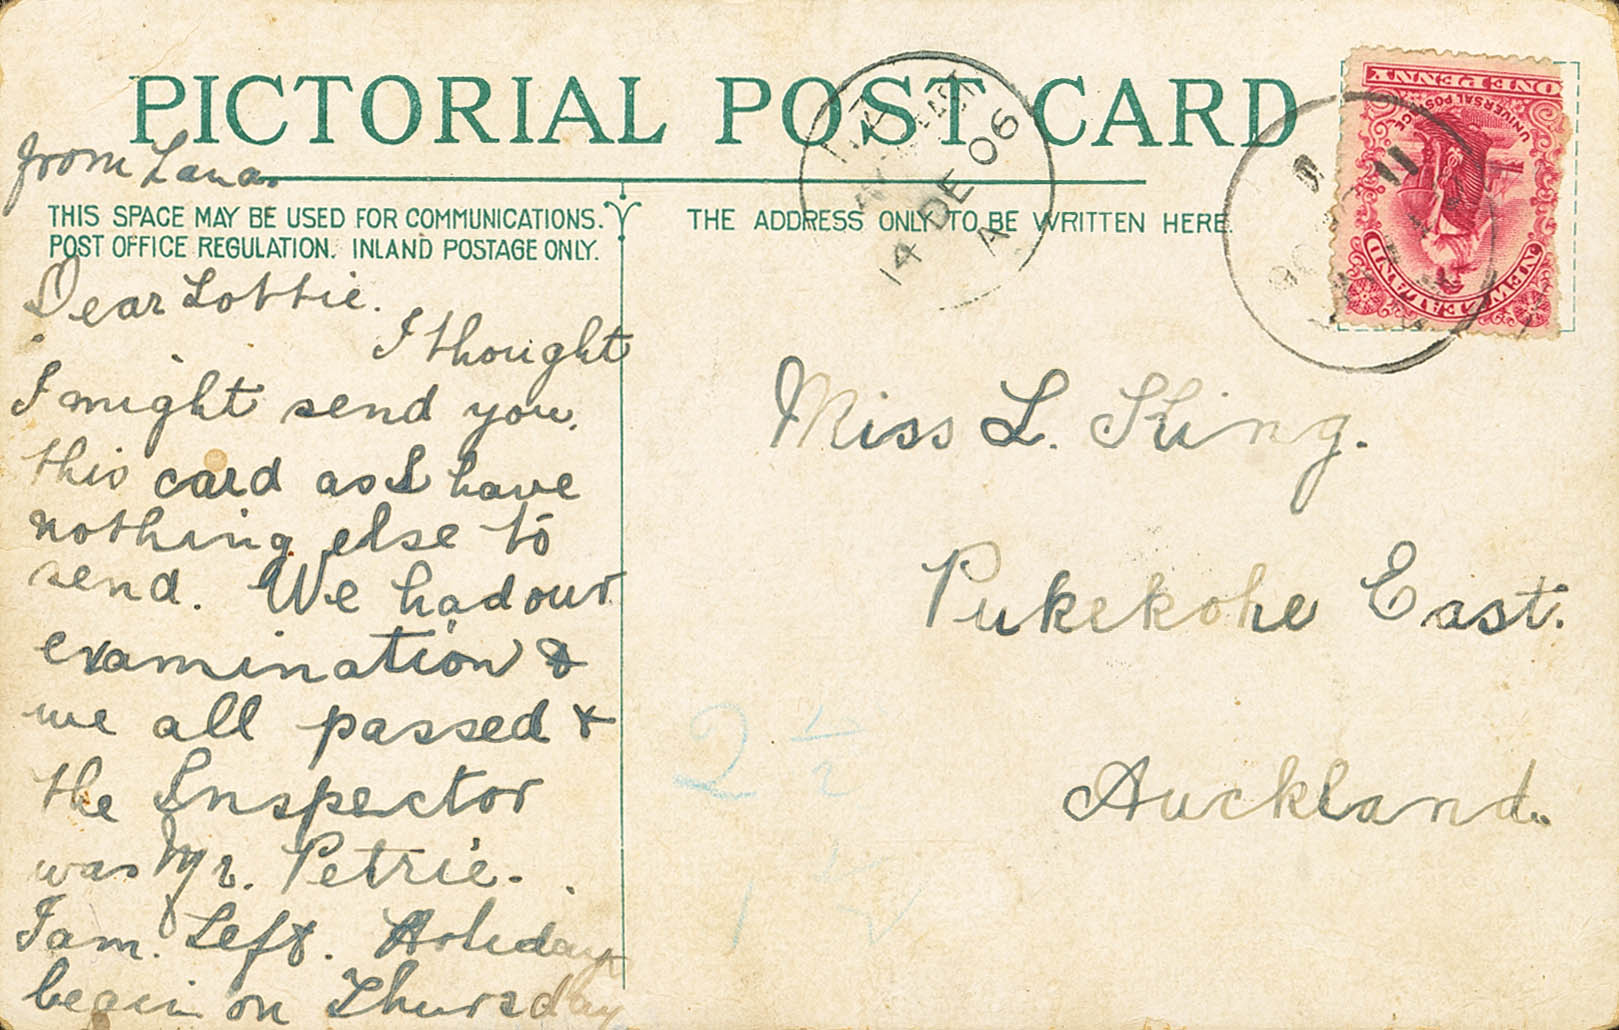 PICTORIAL POST CARD
from Lana.
THIS SPACE MAY BE USED FOR COMMUNICATIONS.
POST OFFICE REGULATION. INLAND POSTAGE ONLY.
Dear Lottie.
I thought
I might send you,
this card as I have
nothing else to
send. We had our
examination &
we all passed &
the Inspector
was Mr. Petrie.
I am Left. Holidays
begin on Thursday
THE ADDRESS ONLY TO BE WRITTEN HERE.
Miss L. King.
Pukekohe East.
Auckland.
2 1/2
14 DE 06
A
ONE PENNY
UNIVERSAL POSTAGE
NEW ZEALAND